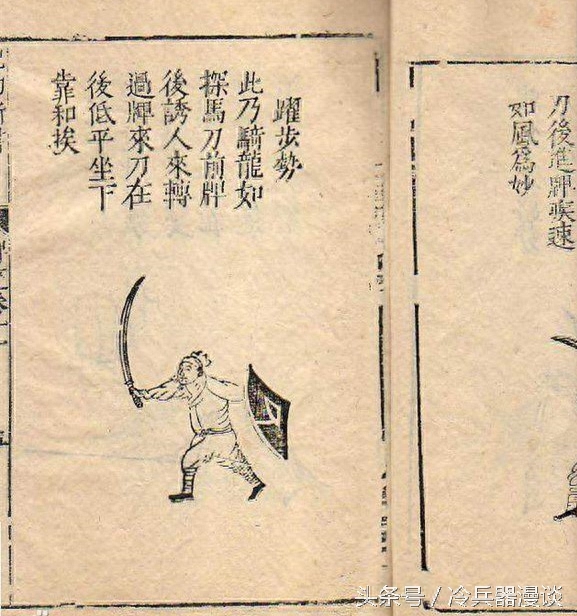 刀後進牌疾速
如風為妙
躍步勢
此乃騎龍如
探馬刀前牌
後誘人來轉
過牌來刀在
後低平坐下
靠和挨
头条号 / 冷兵器漫谈